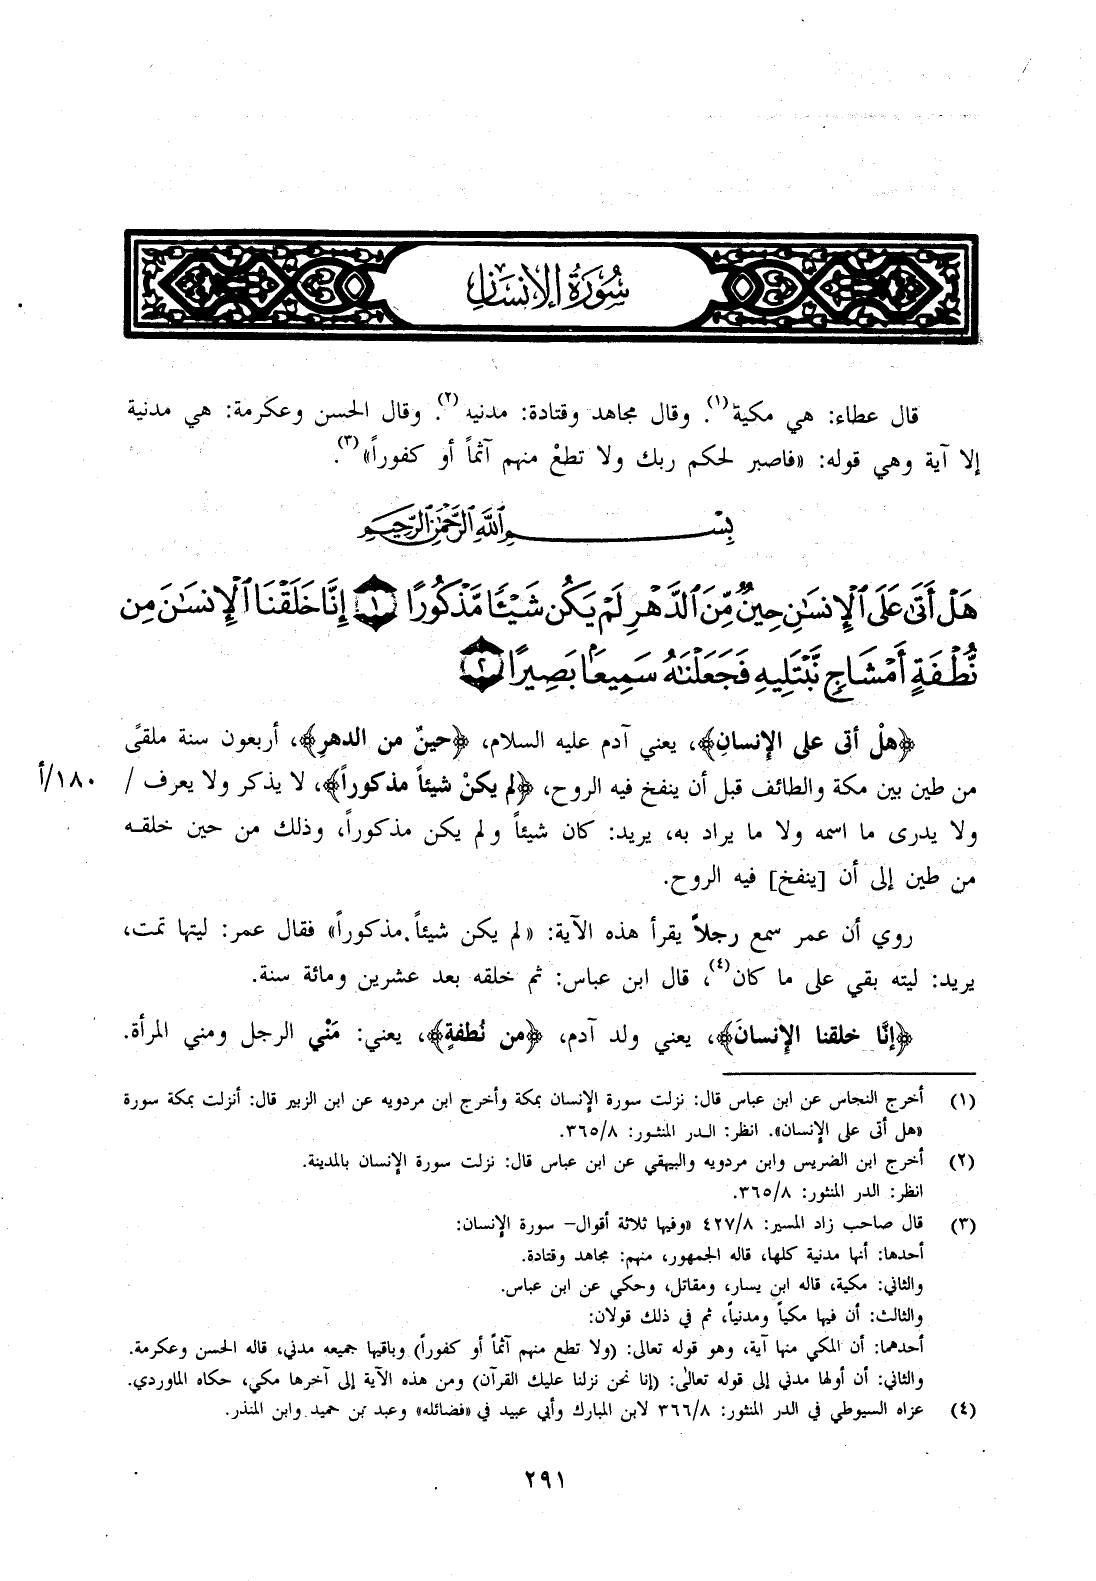 سُورَةُ الإِنسَانِ
قال عطاء: هي مكية(١). وقال مجاهد وقتادة: مدنيه(٢). وقال الحسن وعكرمة: هي مدنية
إلا آية وهي قوله: «فاصبر لحكم ربك ولا تطعْ منهم آثماً أو كفوراً»(٣).
بِسْمِ اللَّهِ الرَّحْمَٰنِ الرَّحِيمِ
هَلْ أَتَىٰ عَلَى ٱلْإِنسَٰنِ حِينٌ مِّنَ ٱلدَّهْرِ لَمْ يَكُن شَيْـًٔا مَّذْكُورًا ١ إِنَّا خَلَقْنَا ٱلْإِنسَٰنَ مِن
نُّطْفَةٍ أَمْشَاجٍ نَّبْتَلِيهِ فَجَعَلْنَٰهُ سَمِيعًۢا بَصِيرًا ٢
﴿هلْ أتى على الإنسانِ﴾، يعني آدم عليه السلام، ﴿حينٌ من الدهرِ﴾، أربعون سنة ملقىً
من طين بين مكة والطائف قبل أن ينفخ فيه الروح، ﴿لم يكنْ شيئاً مذكوراً﴾، لا يذكر ولا يعرف / ١٨٠/أ
ولا يدرى ما اسمه ولا ما يراد به، يريد: كان شيئاً ولم يكن مذكوراً، وذلك من حين خلقه
من طين إلى أن [ينفخ] فيه الروح.
روي أن عمر سمع رجلاً يقرأ هذه الآية: «لم يكن شيئاً مذكوراً» فقال عمر: ليتها تمت،
يريد: ليته بقي على ما كان(٤)، قال ابن عباس: ثم خلقه بعد عشرين ومائة سنة.
﴿إنَّا خلقنا الإنسانَ﴾، يعني ولد آدم، ﴿من نُطفةٍ﴾، يعني: مَنْي الرجل ومني المرأة.
(١) أخرج النجاس عن ابن عباس قال: نزلت سورة الإنسان بمكة وأخرج ابن مردويه عن ابن الزبير قال: أنزلت بمكة سورة
«هل أتى على الإنسان». انظر: الدر المنثور: ٣٦٥/٨.
(٢) أخرج ابن الضريس وابن مردويه والبيهقي عن ابن عباس قال: نزلت سورة الإنسان بالمدينة.
انظر: الدر المنثور: ٣٦٥/٨.
(٣) قال صاحب زاد المسير: ٤٢٧/٨ «وفيها ثلاثة أقوال– سورة الإنسان:
أحدها: أنها مدنية كلها، قاله الجمهور، منهم: مجاهد وقتادة.
والثاني: مكية، قاله ابن يسار، ومقاتل، وحكي عن ابن عباس.
والثالث: أن فيها مكياً ومدنياً، ثم في ذلك قولان:
أحدهما: أن المكي منها آية، وهو قوله تعالى: (ولا تطع منهم آثماً أو كفوراً) وباقيها جميعه مدني، قاله الحسن وعكرمة.
والثاني: أن أولها مدني إلى قوله تعالى: (إنا نحن نزلنا عليك القرآن) ومن هذه الآية إلى آخرها مكي، حكاه الماوردي.
(٤) عزاه السيوطي في الدر المنثور: ٣٦٦/٨ لابن المبارك وأبي عبيد في «فضائله» وعبد بن حميد وابن المنذر.
٢٩١